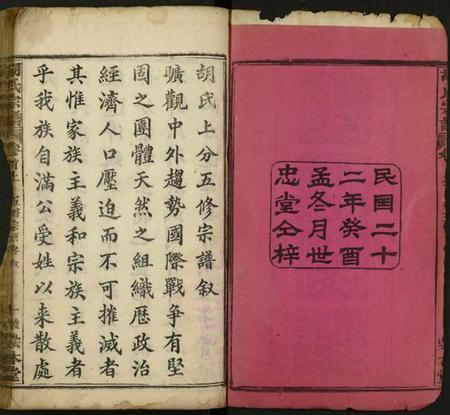 民国二十
二年癸酉
孟冬月世
忠堂仝梓
胡氏上分五修宗譜叙
曠觀中外趨勢國際戰爭有堅
固之團體天然之組織歷政治
經濟人口壓迫而不可摧滅者
其惟家族主義和宗族主義者
乎我族自滿公受姓以來散處
胡氏宗譜